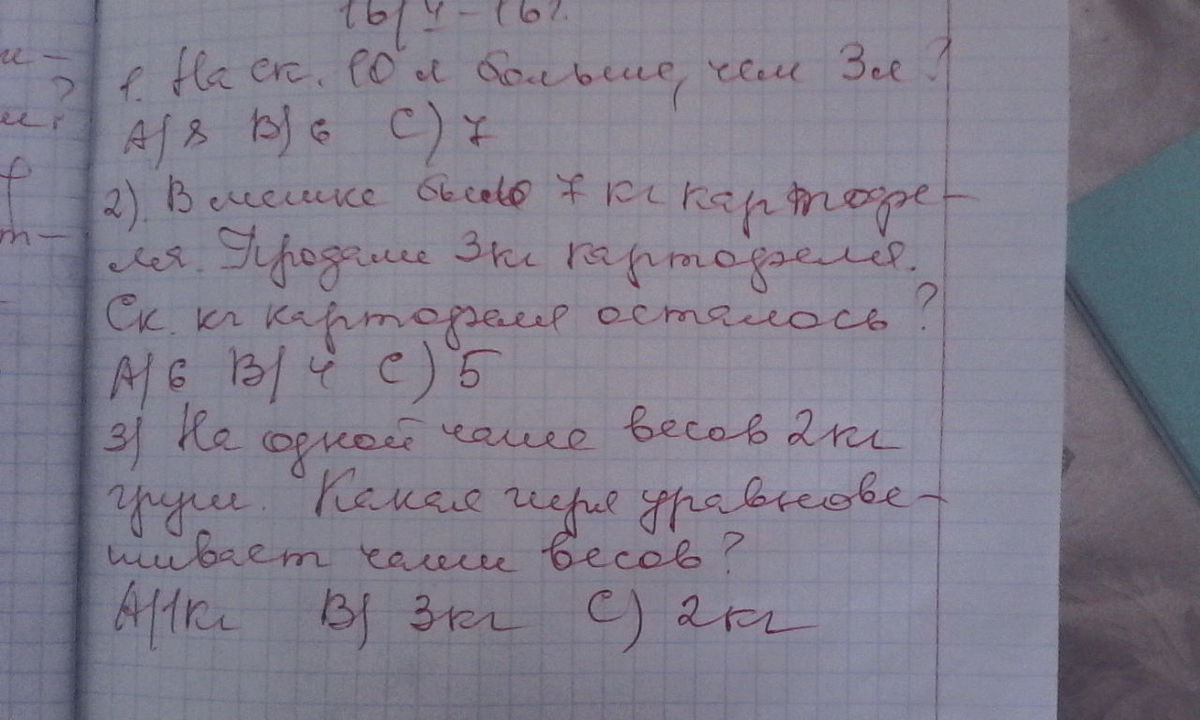 1. На ск. 10 л больше, чем 3л?
А) 8 В) 6 С) 7
2). В мешке было 7 кг картофе-
ля. Продали 3кг картофеля.
Ск. кг картофеля осталось?
А) 6 В) 4 С) 5
3) На одной чаше весов 2кг
груш. Какая гиря уравнове-
шивает чаши весов?
А) 1кг В) 3кг С) 2кг